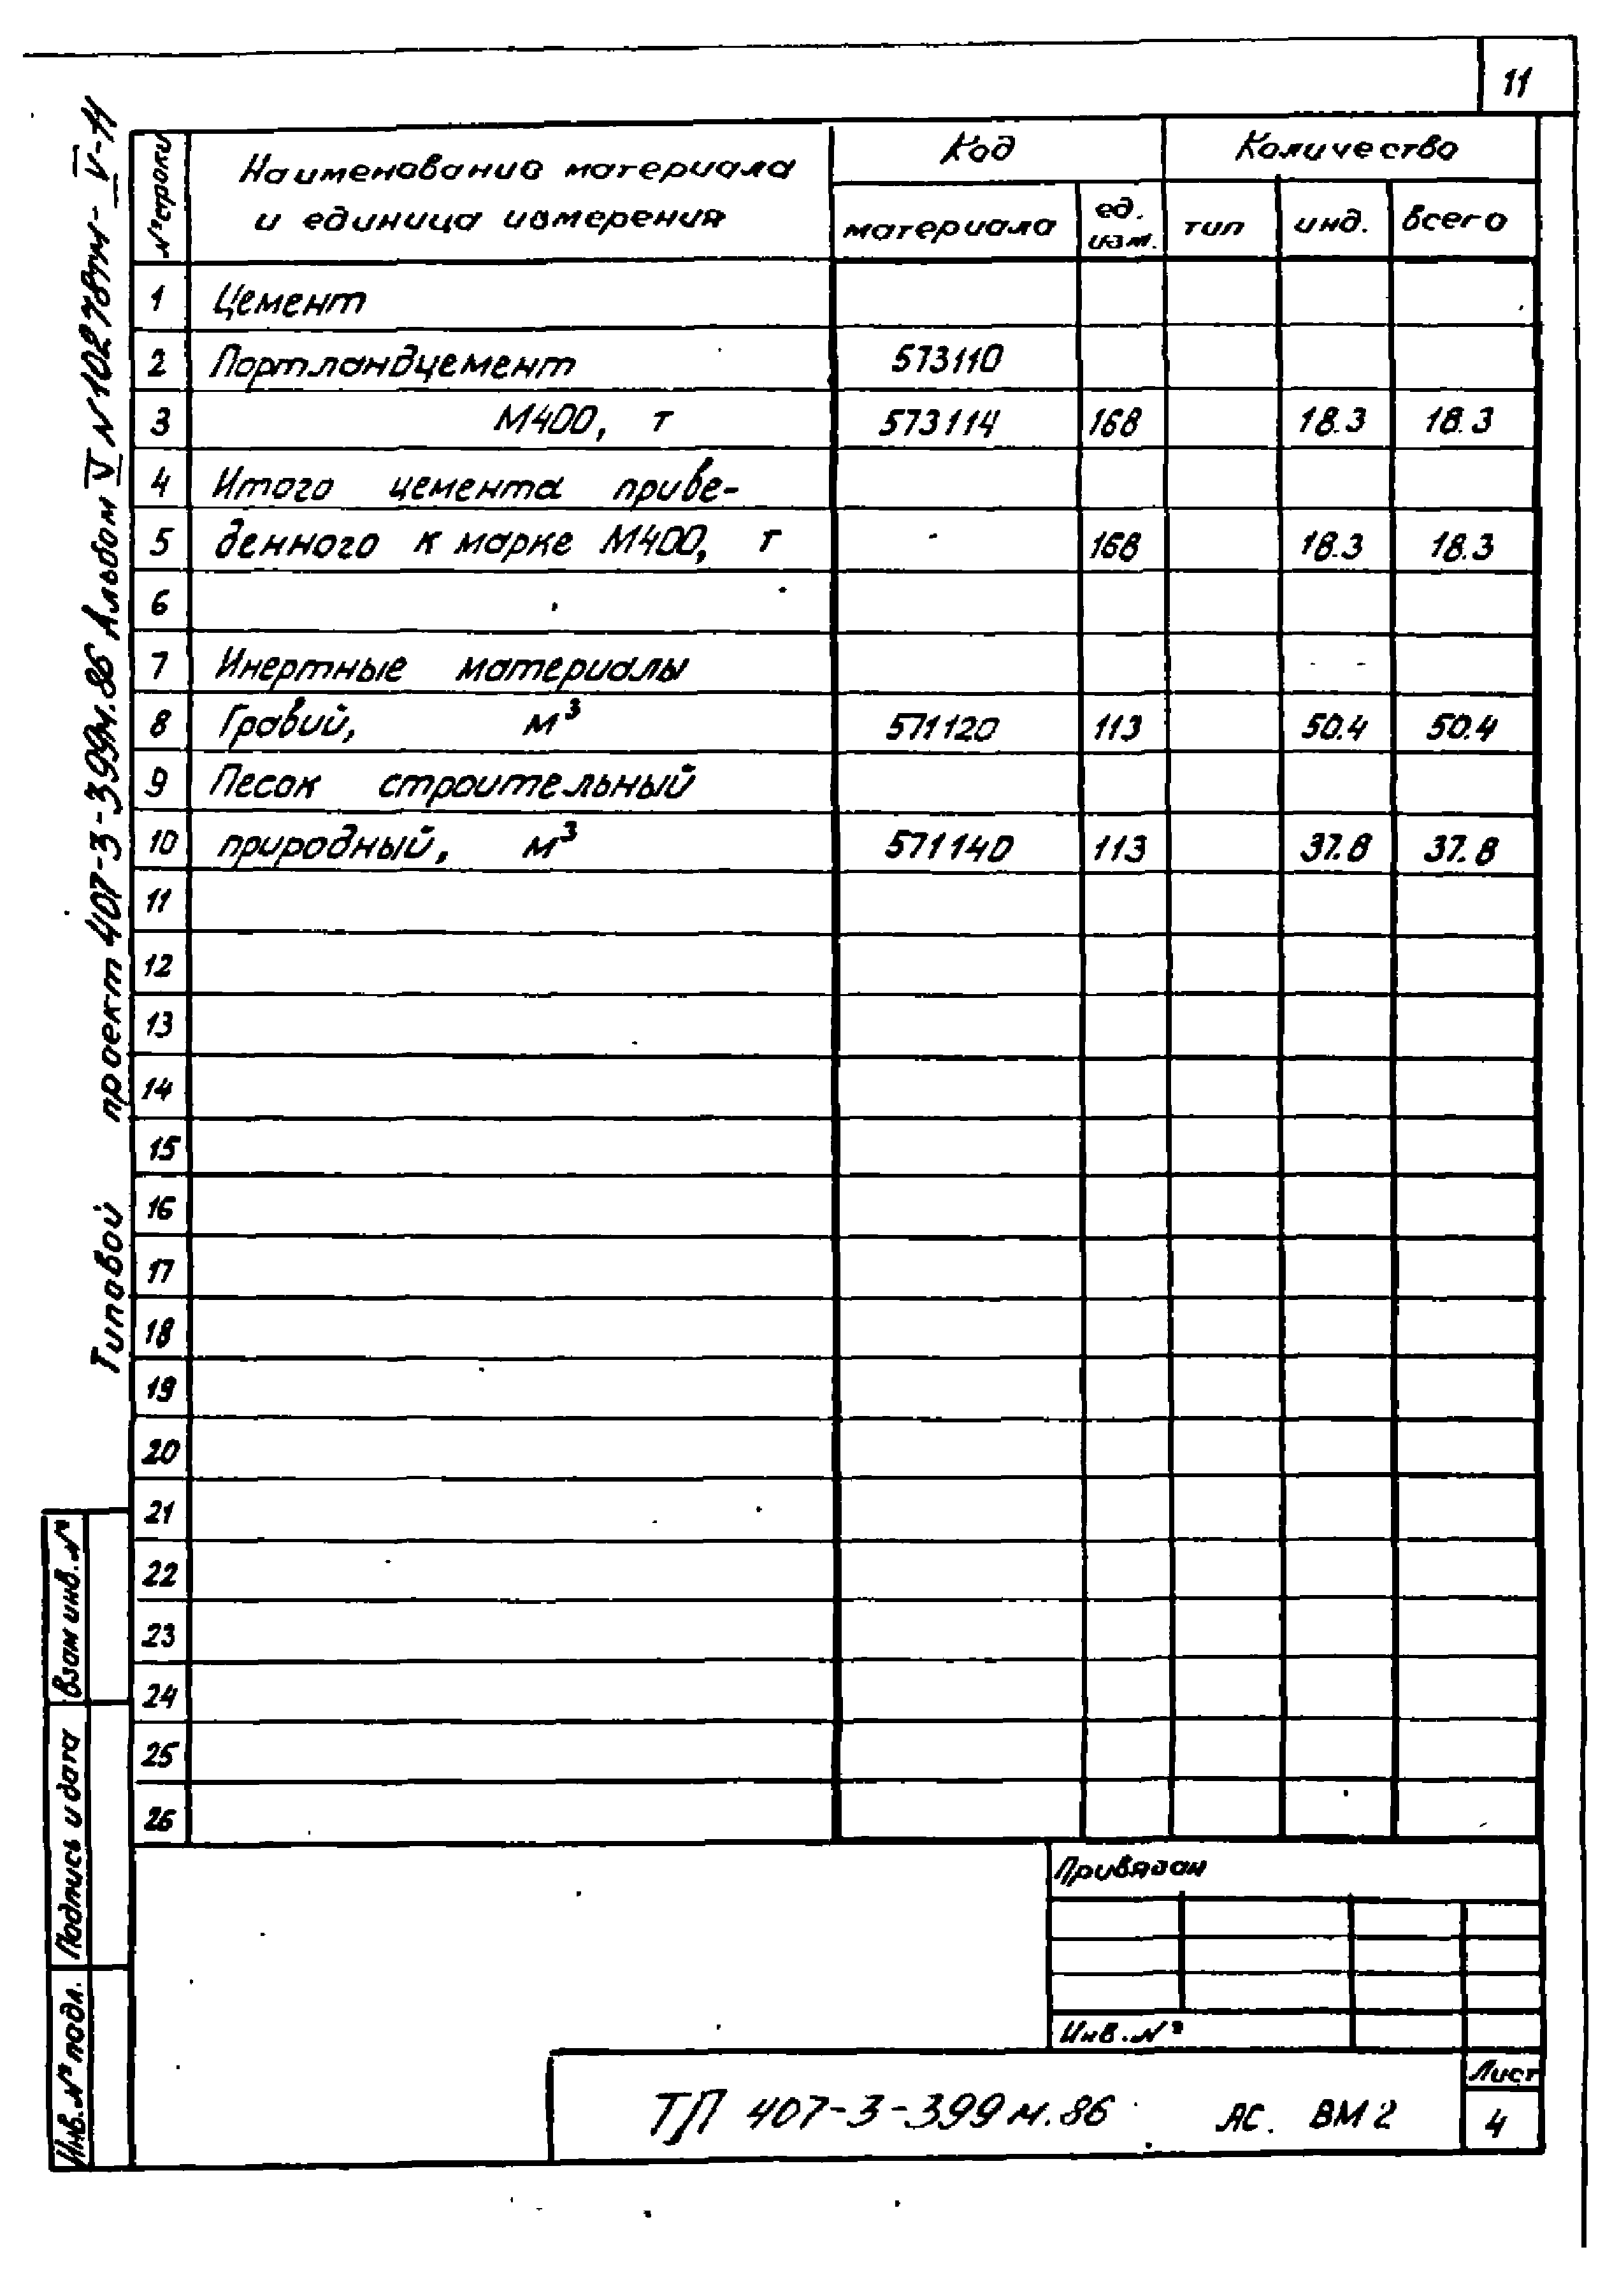 11
Типовой проект 407-3-399м.86 Альбом V N10278тм-V-11
№ строки
Наименование материала и единица измерения
Код
Количество
материала
ед. изм.
тип
инд.
всего
1 Цемент
2 Портландцемент 573110
3 М400, т 573114 168 18.3 18.3
4 Итого цемента приве-
5 денного к марке М400, т 168 18.3 18.3
6
7 Инертные материалы
8 Гравий, м³ 571120 113 50.4 50.4
9 Песок строительный
10 природный, м³ 571140 113 37.8 37.8
11
12
13
14
15
16
17
18
19
20
21
22
23
24
25
26
Взам инв. №
Подпись и дата
Инв. № подл.
Привязан
Инв. №
ТП 407-3-399м.86 АС. ВМ2
Лист
4